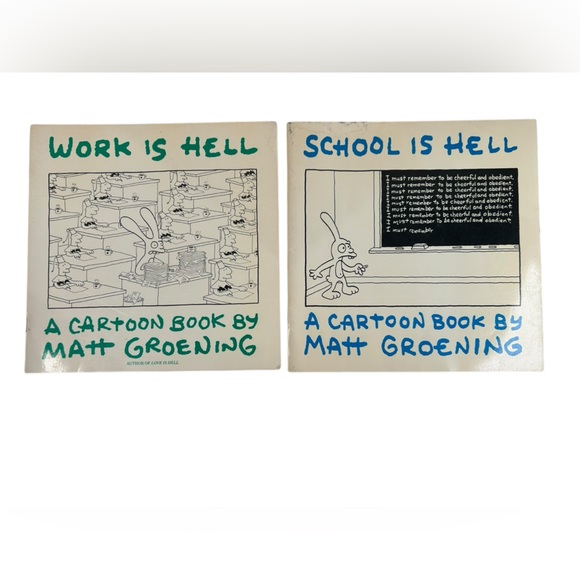 WORK IS HELL
A CARTOON BOOK BY
MATT GROENING
AUTHOR OF LOVE IS HELL
SCHOOL IS HELL
I must remember to be cheerful and obedient.
I must remember to be cheerful and obedient.
I must remember to be cheerful and obedient.
I must remember to be cheerful and obedient.
I must remember to be cheerful and obedient.
I must remember to be cheerful and obedient.
I must remember to be cheerful and obedient.
I must remember to be cheerful and obedient.
I must remember
A CARTOON BOOK BY
MATT GROENING